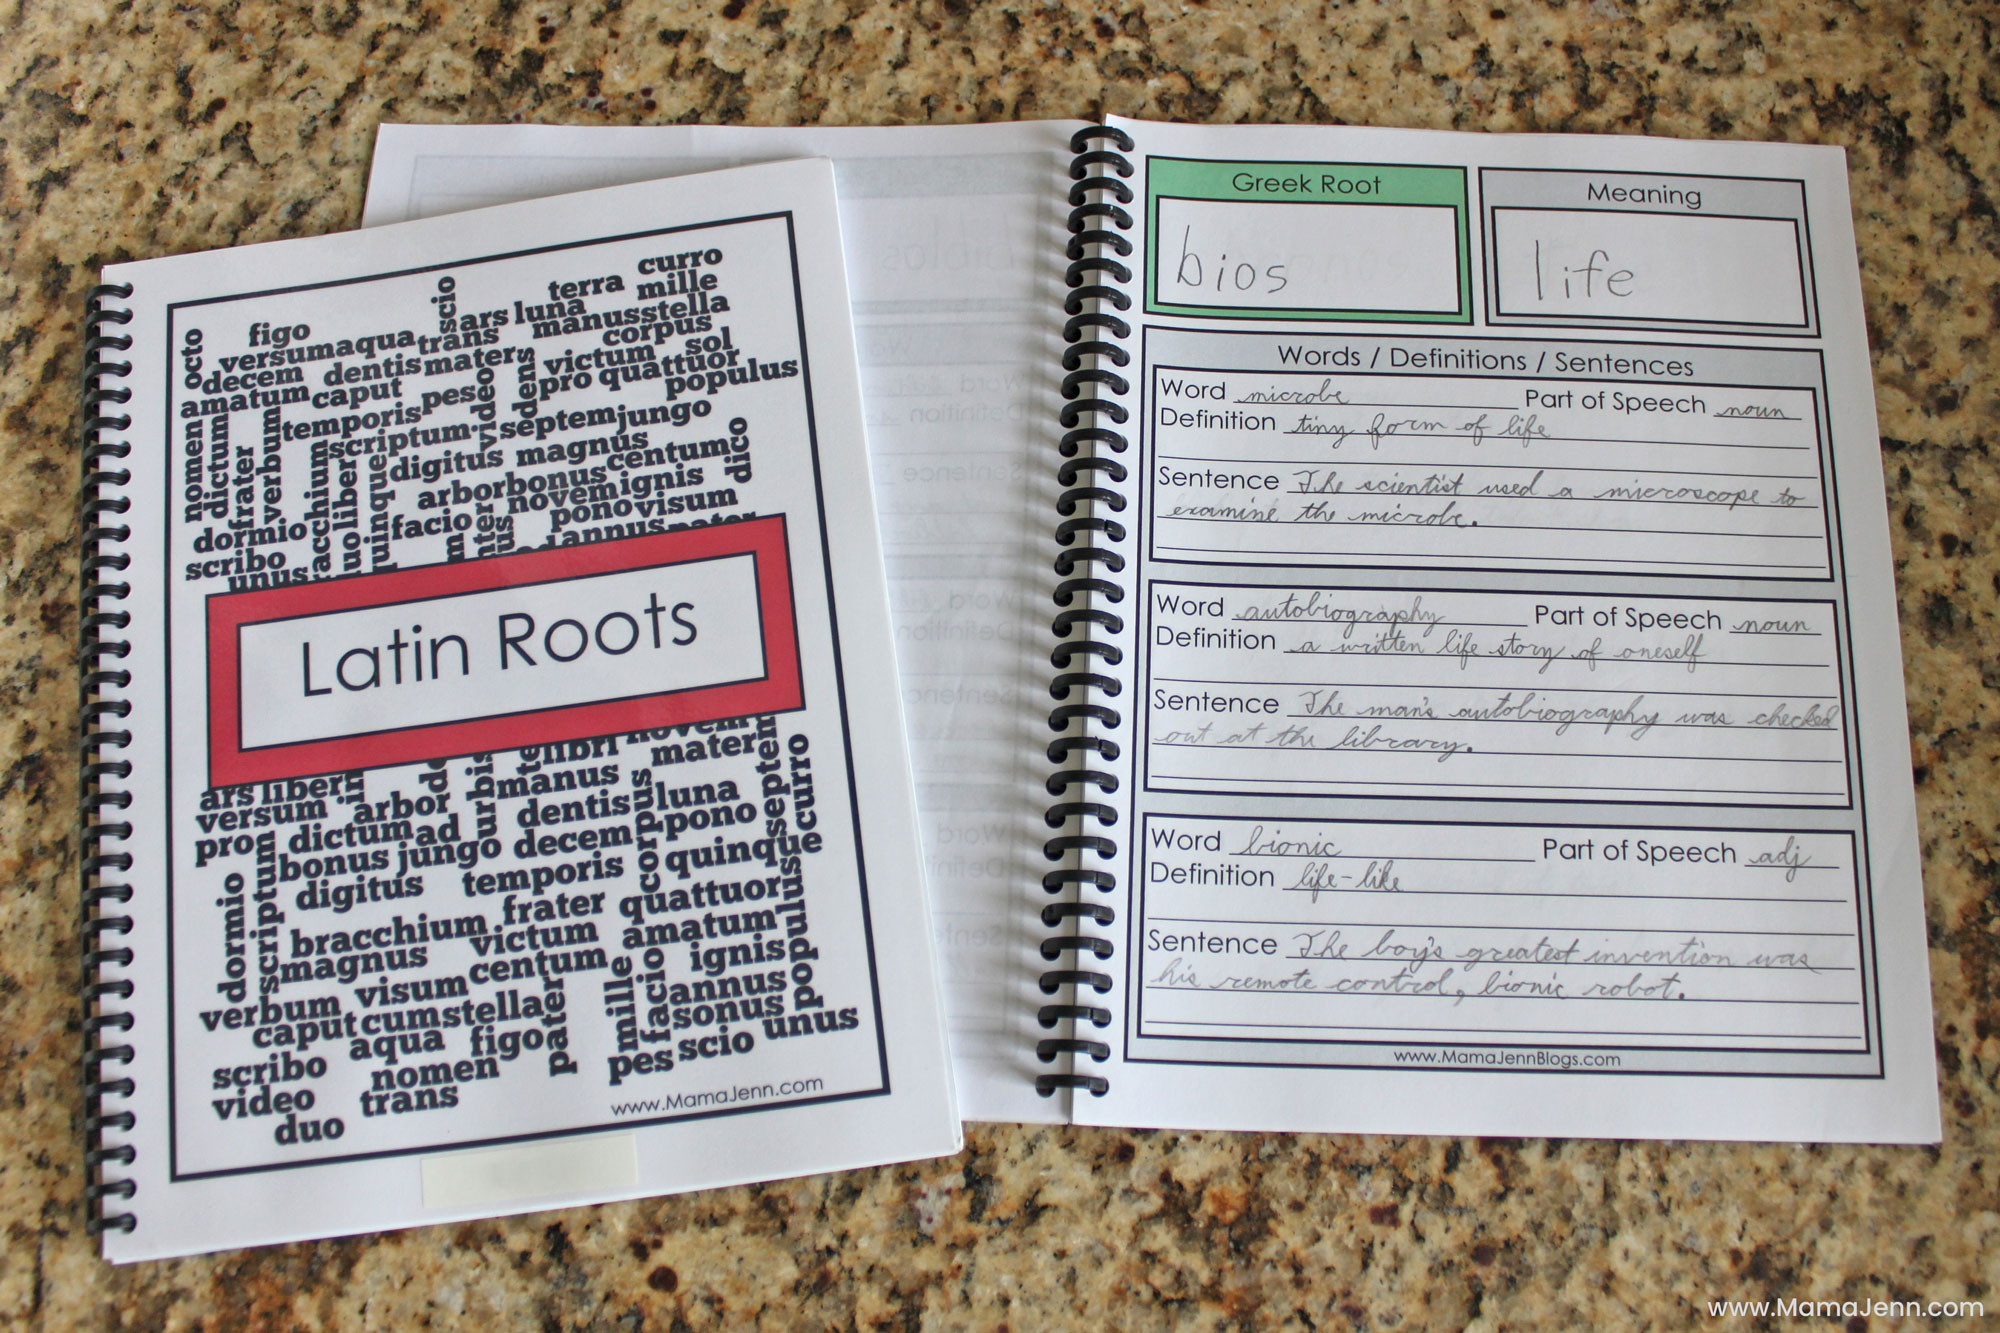 curro
scio
terra mille
ars luna
manus stella
octo
figo
versum aqua trans
corpus
decem dentis mater
victum sol
amatum caput
pro quattuor
populus
temporis peseo
video
dens
nomen
dictum
frater
verbum
scriptum septem jungo
digitus magnus
centum
dico
arbor bonus
novem ignis
liber
quinque
dormio
facio
pono visum
scribo
annus
unus
Latin Roots
libri
mater
manus
ars liber in
versum arbor
dictum ad
urbis
dentis luna
corpus
pono
septem
curro
pro
bonus jungo decem
quinque
digitus temporis
dormio
scriptum
frater quattuor
bracchium
victum amatum
magnus
ignis
populus
visum centum
verbum
mille
facio
annus
caput cum stella
sonus unus
aqua figo
pater
scribo
pes scio
nomen
video trans
duo
www.MamaJenn.com
Greek Root
bios
Meaning
life
Words / Definitions / Sentences
Word microbe Part of Speech noun
Definition tiny form of life
Sentence The scientist used a microscope to
examine the microbe.
Word autobiography Part of Speech noun
Definition a written life story of oneself
Sentence The man's autobiography was checked
out at the library.
Word bionic Part of Speech adj
Definition life-like
Sentence The boy's greatest invention was
his remote control, bionic robot.
www.MamaJennBlogs.com
www.MamaJenn.com